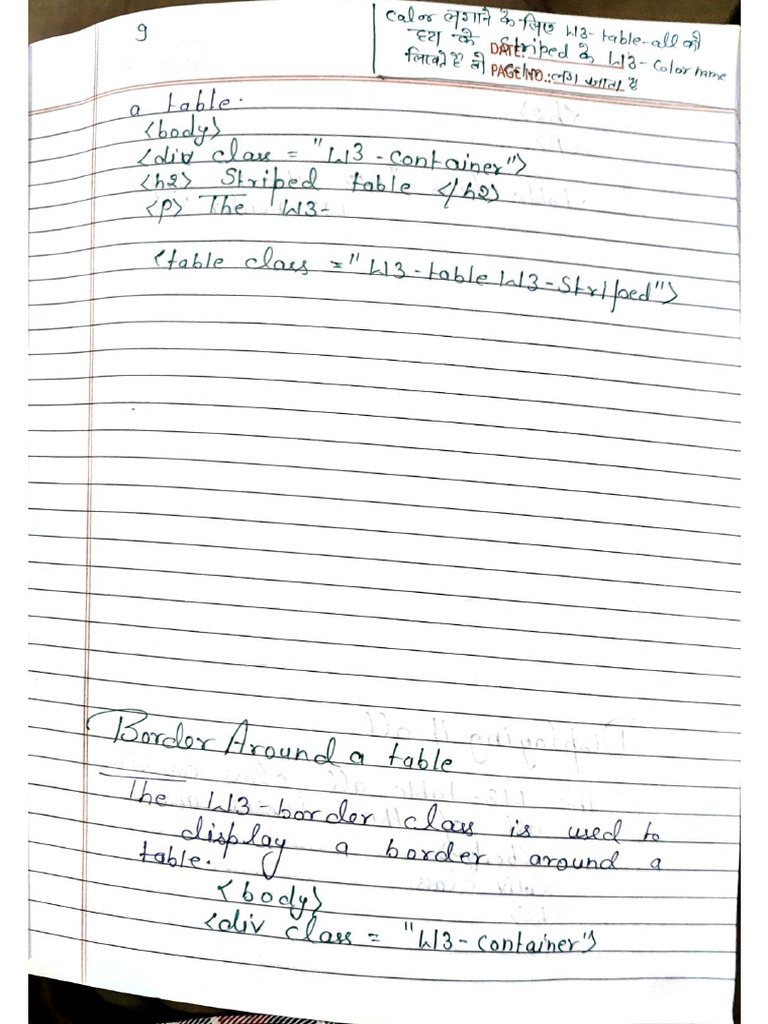 9
Color लगाने के लिए W3-table-all को
हटा के Striped के W3-Color name
DATE:
लिखते हैं तो लग जाता है
PAGE NO.:
a table.
<body>
<div class = "W3-Container">
<h2> Striped table </h2>
<p> The W3-
<table class ="W3-table W3-Striped">
Border Around a table
The W3-border class is used to
display a border around a
table.
<body>
<div class = "W3-Container">